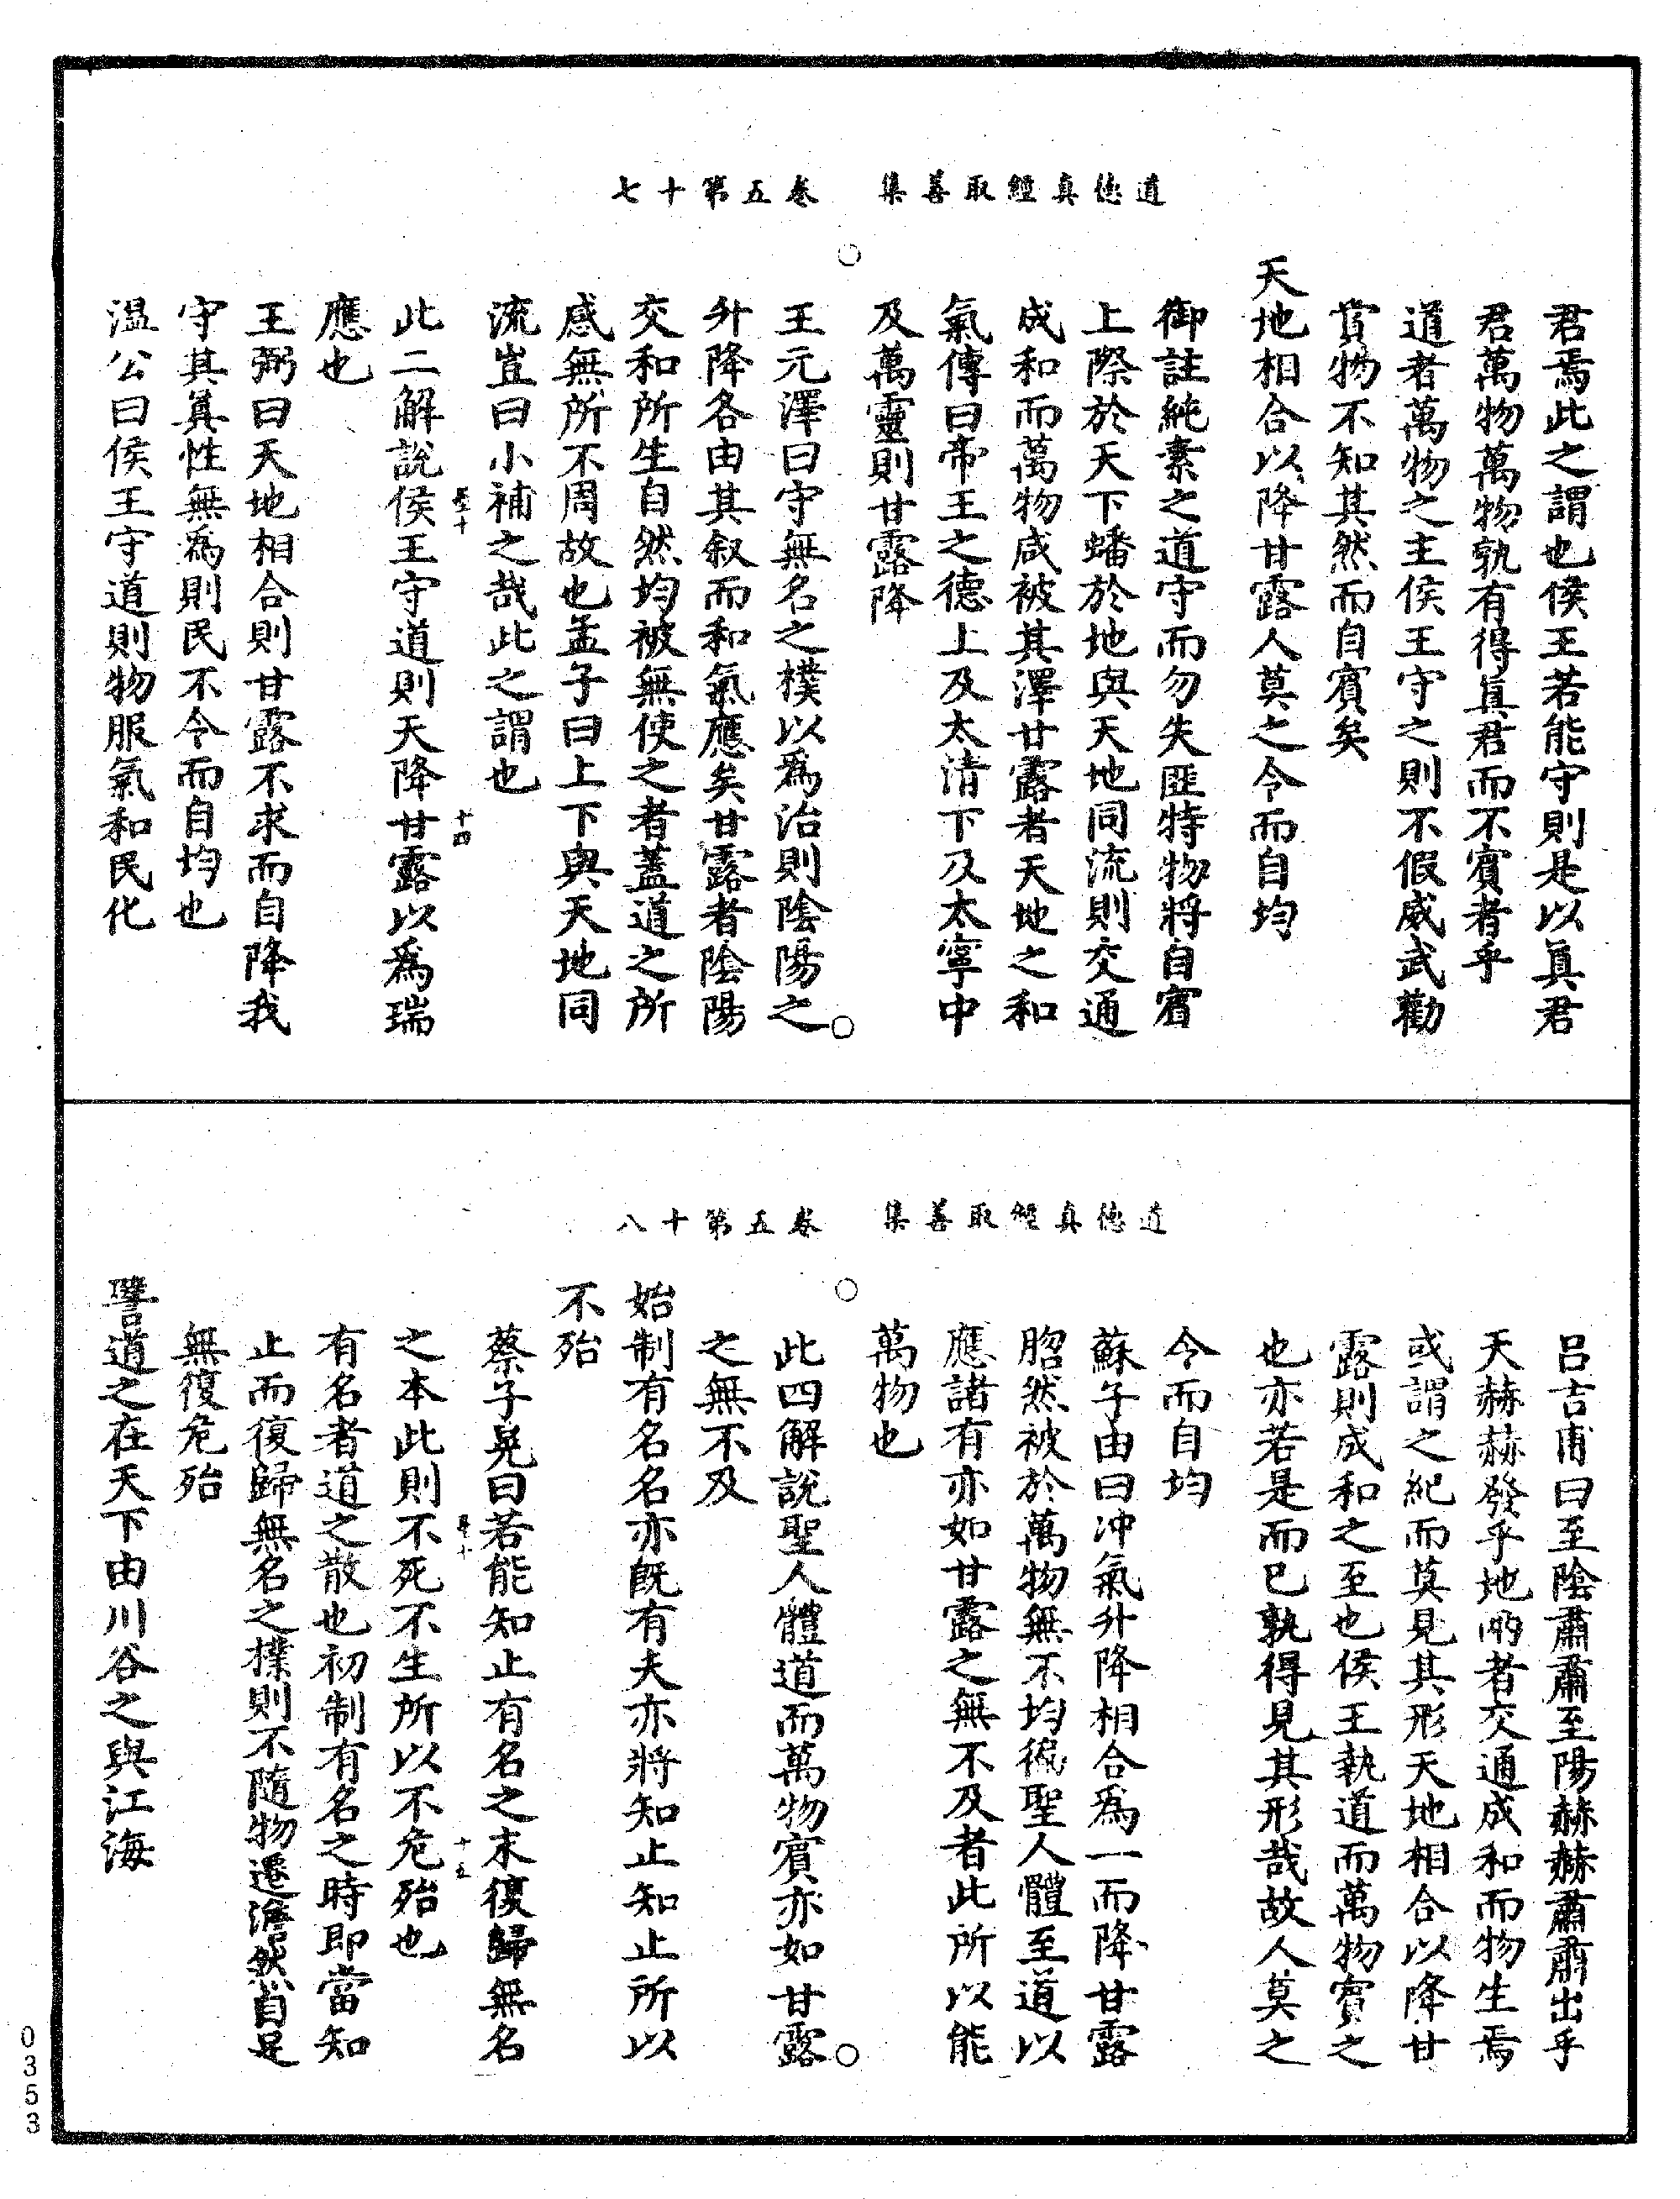 道德真經取善集　卷五第十七
君焉此之謂也侯王若能守則是以眞君
君萬物萬物孰有得眞君而不賓者乎
道者萬物之主侯王守之則不假威武勸
賞物不知其然而自賓矣
天地相合以降甘露人莫之令而自均
御註純素之道守而勿失匪特物將自賓
上際於天下蟠於地與天地同流則交通
成和而萬物咸被其澤甘露者天地之和
氣傳曰帝王之德上及太清下及太寧中
及萬靈則甘露降
王元澤曰守無名之樸以爲治則陰陽之
升降各由其叙而和氣應矣甘露者陰陽
交和所生自然均被無使之者蓋道之所
感無所不周故也孟子曰上下與天地同
流豈曰小補之哉此之謂也
十四
此二解說侯王守道則天降甘露以爲瑞
應也
王弼曰天地相合則甘露不求而自降我
守其眞性無爲則民不令而自均也
温公曰侯王守道則物服氣和民化
道德真經取善集　卷五第十八
吕吉甫曰至陰肅肅至陽赫赫肅肅出乎
天赫赫發乎地兩者交通成和而物生焉
或謂之紀而莫見其形天地相合以降甘
露則成和之至也侯王執道而萬物賓之
也亦若是而已孰得見其形哉故人莫之
令而自均
蘇子由曰冲氣升降相合爲一而降甘露
脗然被於萬物無不均徧聖人體至道以
應諸有亦如甘露之無不及者此所以能
萬物也
此四解說聖人體道而萬物賓亦如甘露
之無不及
始制有名名亦旣有夫亦將知止知止所以
不殆
蔡子晃曰若能知止有名之末復歸無名
十五
之本此則不死不生所以不危殆也
有名者道之散也初制有名之時即當知
止而復歸無名之樸則不隨物遷澹然自足
無復危殆
譬道之在天下由川谷之與江海
0353